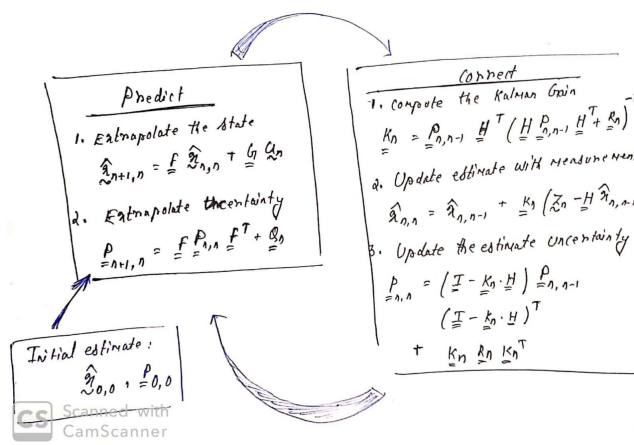 Predict
1. Extrapolate the state
x̂ₙ₊₁,ₙ = F x̂ₙ,ₙ + G uₙ
2. Extrapolate uncertainty
Pₙ₊₁,ₙ = F Pₙ,ₙ Fᵀ + Qₙ
Initial estimate:
x̂₀,₀ , P₀,₀
Correct
1. Compute the Kalman Gain
Kₙ = Pₙ,ₙ₋₁ Hᵀ (H Pₙ,ₙ₋₁ Hᵀ + Rₙ)⁻
2. Update estimate with measuremen
x̂ₙ,ₙ = x̂ₙ,ₙ₋₁ + Kₙ (Zₙ - H x̂ₙ,ₙ₋₁
3. Update the estimate uncertainty
Pₙ,ₙ = (I - Kₙ · H) Pₙ,ₙ₋₁
(I - Kₙ · H)ᵀ
+ Kₙ Rₙ Kₙᵀ
CS Scanned with
CamScanner